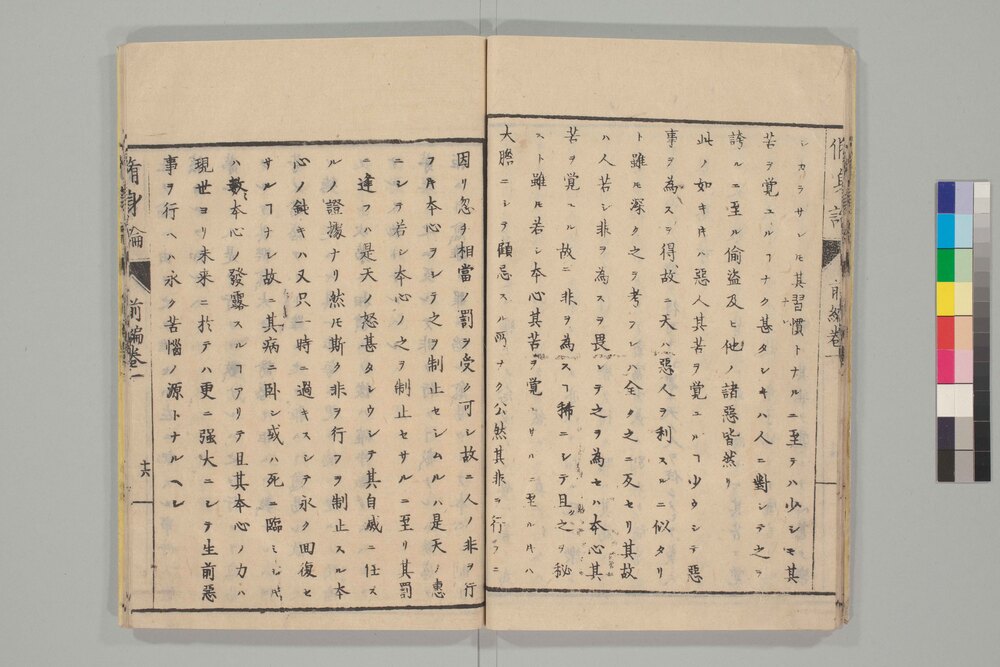 シカラサレ𪜈其習慣トナルニ至テハ少シモ其
苦ヲ覚ユルヿナク甚タシキハ人ニ對シテ之ヲ
誇ルニ至ル偷盗及ヒ他ノ諸惡皆然リ
此ノ如キ𪜈ハ惡人其苦ヲ覚ユルヿ少ウシテ惡
事ヲ為スヲ得故ニ天ハ惡人ヲ利スルニ似タリ
ト雖𪜈深ク之ヲ考フレハ全ク之ニ反セリ其故
ハ人若シ非ヲ為スヲ畏レテ之ヲ為セハ本心其
苦ヲ覚ユル故ニ非ヲ為スヿ稀ニシテ且之ヲ秘
スト雖𪜈若シ本心其苦ヲ覚エサルニ至ル𪜈ハ
大膽ニシテ顧忌スル所ナク公然其非ヲ行フニ
因リ忽チ相當ノ罰ヲ受ク可シ故ニ人ノ非ヲ行
フ𪜈本心ヲシテ之ヲ制止セシムルハ是天ノ惠
ニシテ若シ本心ノ之ヲ制止セサルニ至リ其罰
ニ逢フハ是天ノ怒甚タシウシテ其自滅ニ任ス
ルノ證據ナリ然𪜈斯ク非ヲ行フヲ制止スル本
心ノ鈍キハ又只一時ニ過キスシテ永ク回復セ
サルヿナシ故ニ其病ニ臥シ或ハ死ニ臨ミシ𪜈
ハ本心ノ發露スルヿアリテ且其本心ノ力ハ
現世ヨリ未来ニ於テハ更ニ强大ニシテ生前惡
事ヲ行ヘハ永ク苦惱ノ源トナルヘシ
脩身論 前編卷一 十六